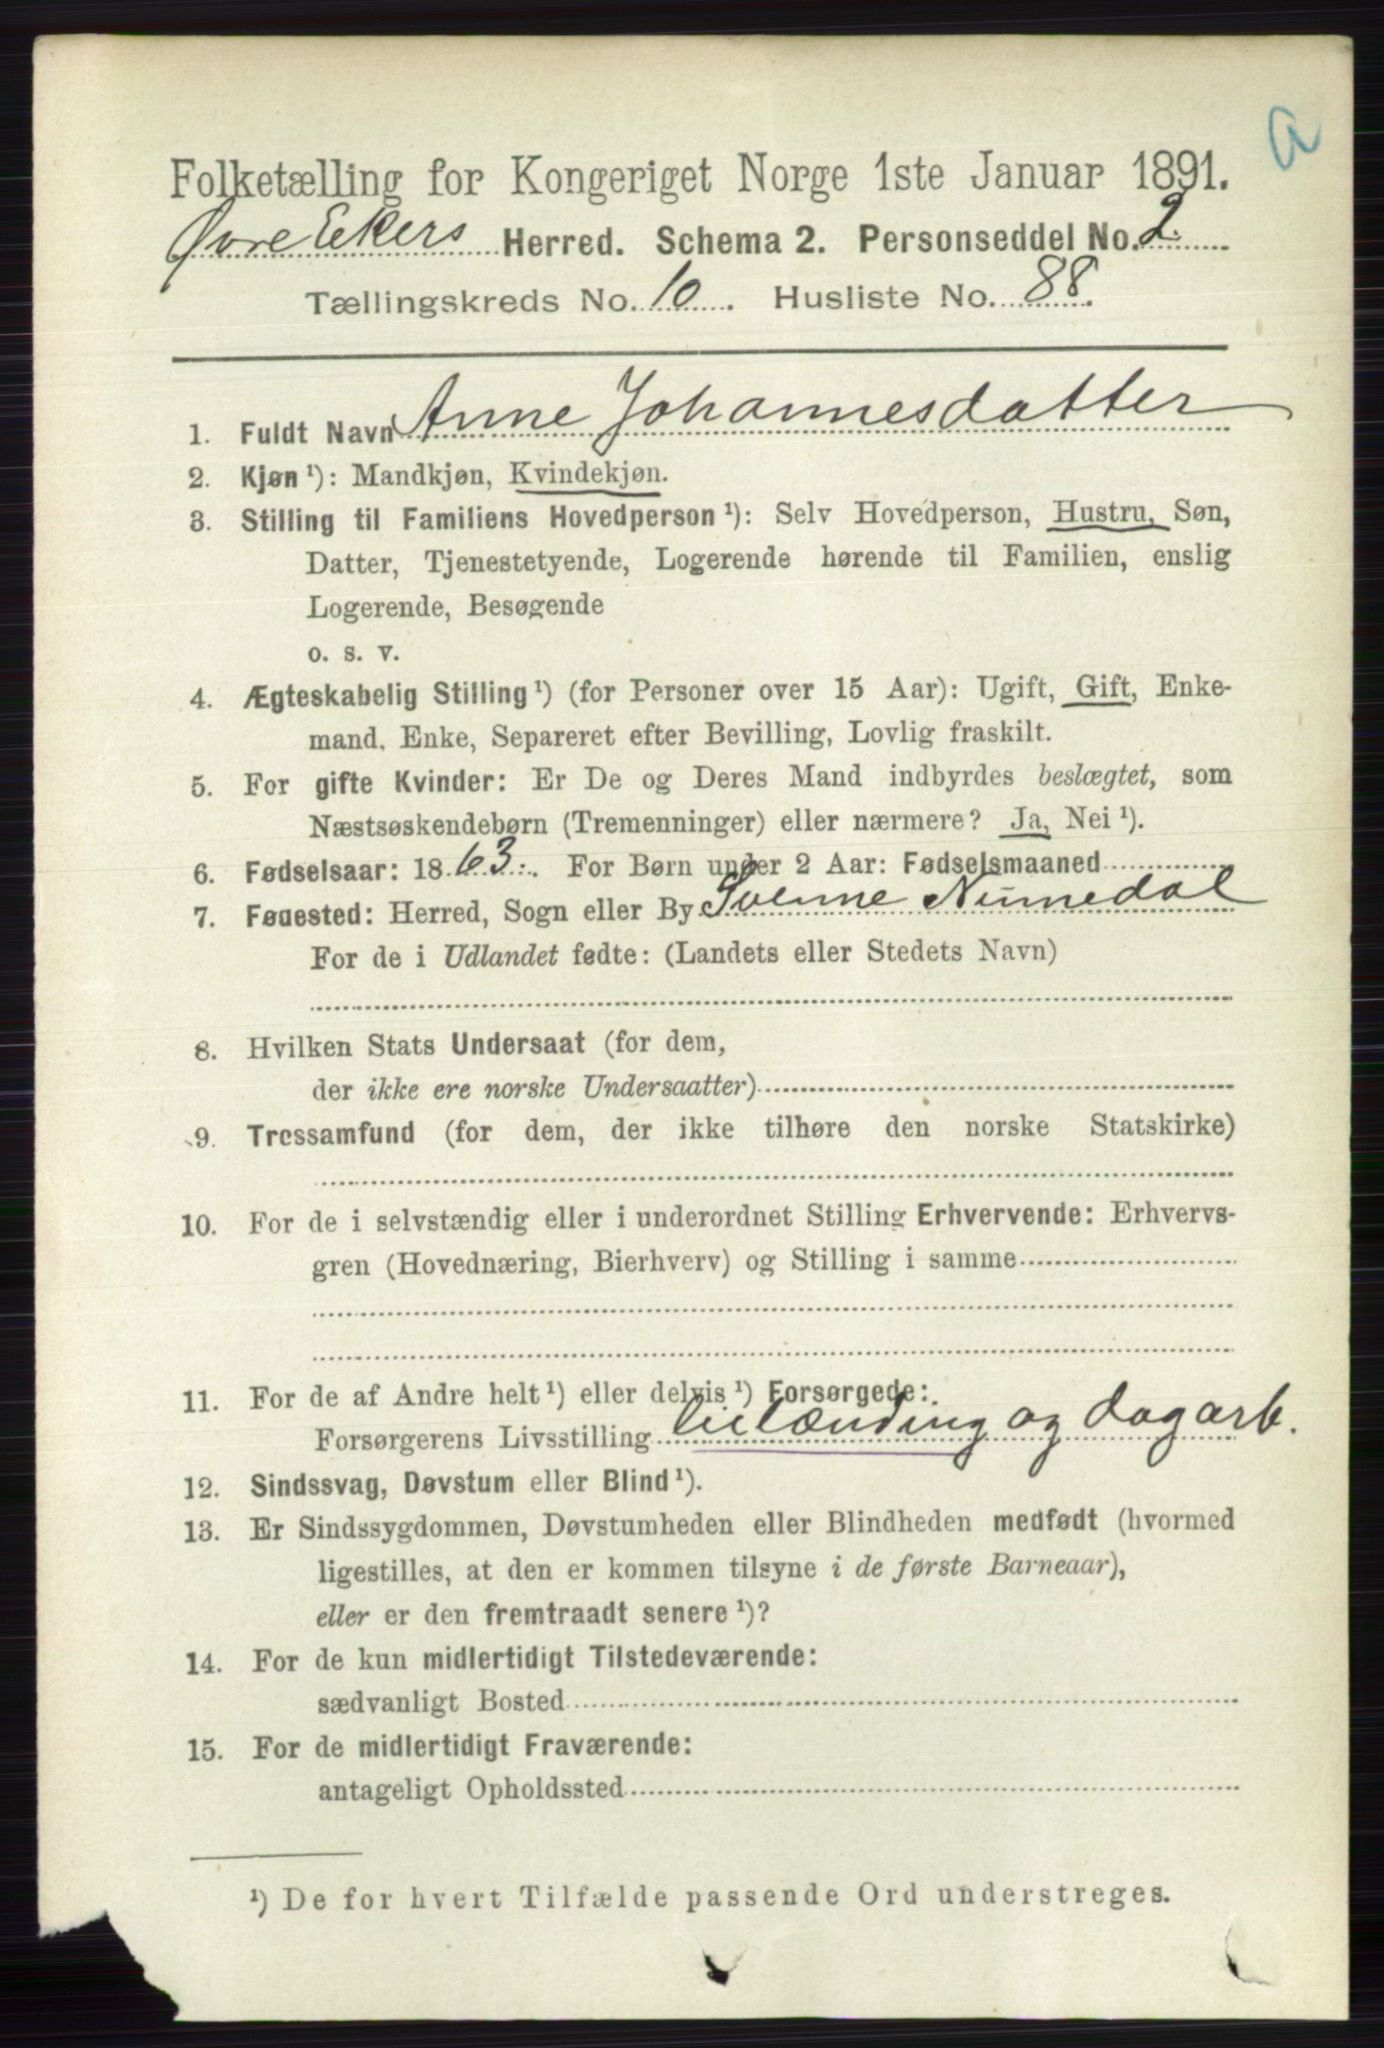 a
Folketælling for Kongeriget Norge 1ste Januar 1891.
Øvre Ekers Herred. Schema 2. Personseddel No. 2.
Tællingskreds No. 10. Husliste No. 88.
1. Fuldt Navn Anne Johannesdatter
2. Kjøn ¹): Mandkjøn, Kvindekjøn.
3. Stilling til Familiens Hovedperson ¹): Selv Hovedperson, Hustru, Søn,
Datter, Tjenestetyende, Logerende hørende til Familien, enslig
Logerende, Besøgende
o. s. v.
4. Ægteskabelig Stilling ¹) (for Personer over 15 Aar): Ugift, Gift, Enke-
mand, Enke, Separeret efter Bevilling, Lovlig fraskilt.
5. For gifte Kvinder: Er De og Deres Mand indbyrdes beslægtet, som
Næstsøskendebørn (Tremenninger) eller nærmere? Ja, Nei ¹).
6. Fødselsaar: 1863. For Børn under 2 Aar: Fødselsmaaned
7. Føuested: Herred, Sogn eller By Svenne Numedal
For de i Udlandet fødte: (Landets eller Stedets Navn)
8. Hvilken Stats Undersaat (for dem,
der ikke ere norske Undersaatter)
9. Trossamfund (for dem, der ikke tilhøre den norske Statskirke)
10. For de i selvstændig eller i underordnet Stilling Erhvervende: Erhvervs-
gren (Hovednæring, Bierhverv) og Stilling i samme
11. For de af Andre helt ¹) eller delvis ¹) Forsørgede:
Forsørgerens Livsstilling leilænding og dagarb.
12. Sindssvag, Døvstum eller Blind ¹).
13. Er Sindssygdommen, Døvstumheden eller Blindheden medfødt (hvormed
ligestilles, at den er kommen tilsyne i de første Barneaar),
eller er den fremtraadt senere ¹)?
14. For de kun midlertidigt Tilstedeværende:
sædvanligt Bosted
15. For de midlertidigt Fraværende:
antageligt Opholdssted
¹) De for hvert Tilfælde passende Ord understreges.